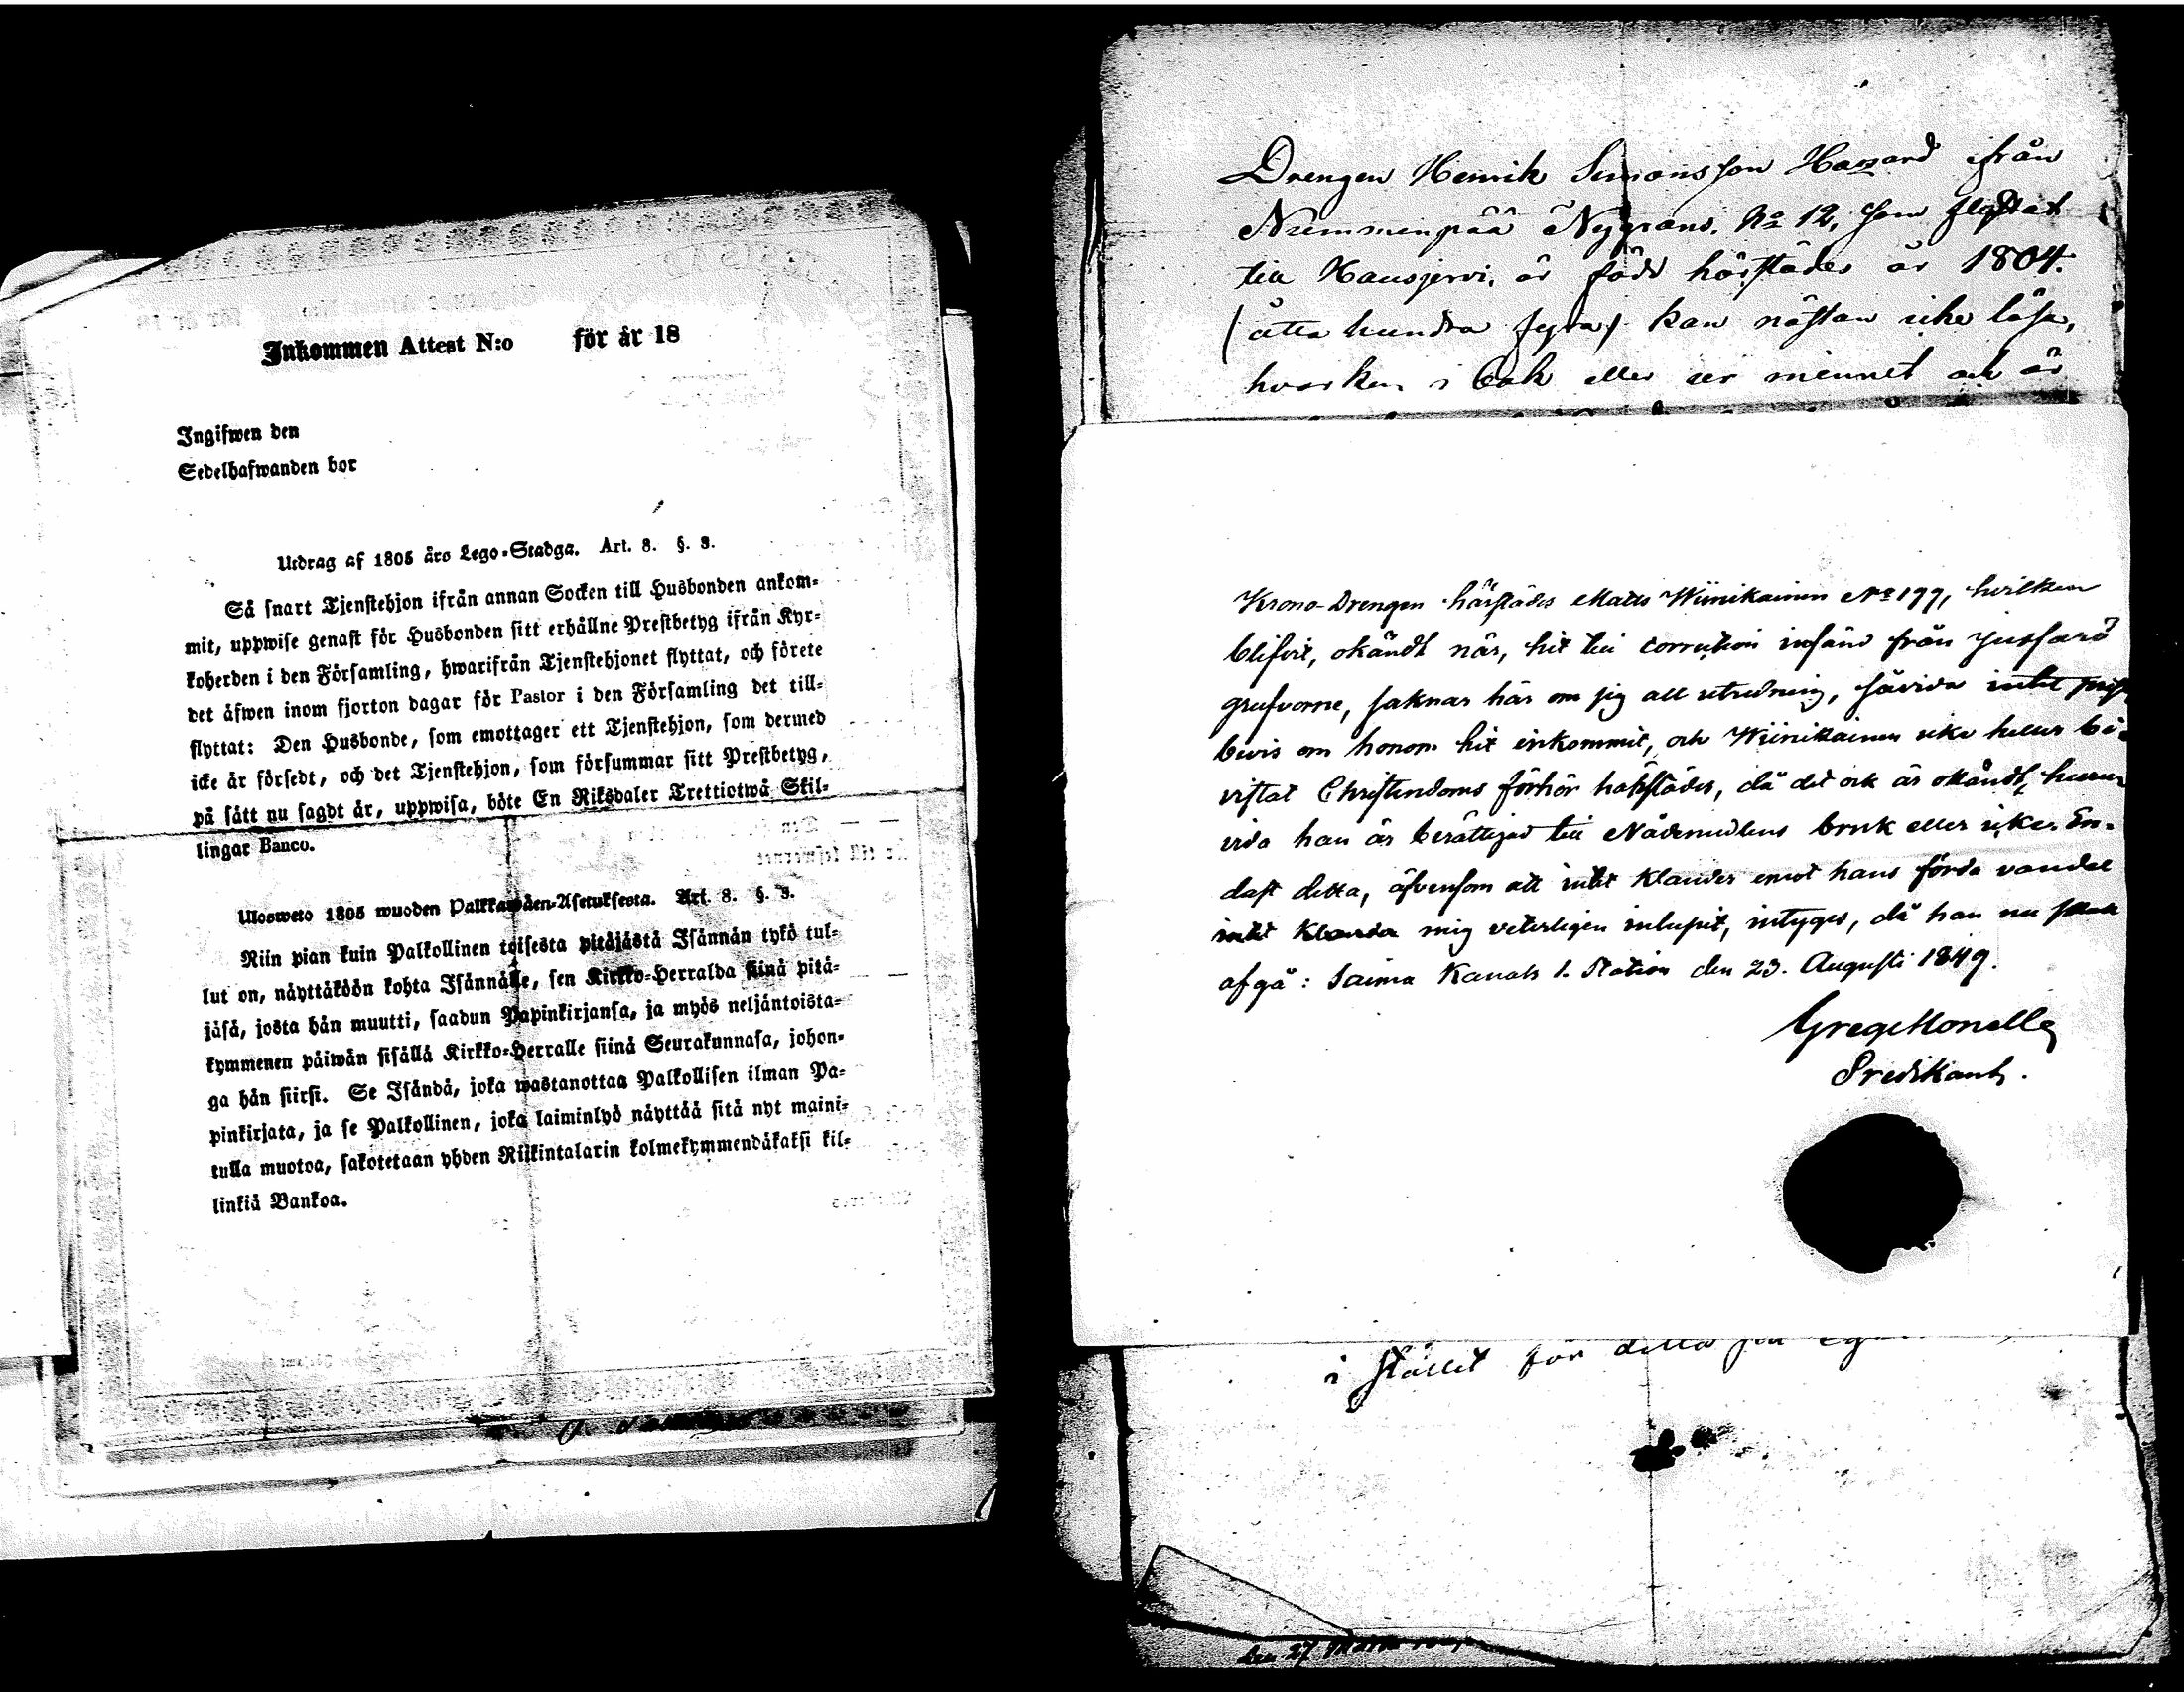 Inkommen Attest N:o för år 18
Ingifwen den
Sedelhafwanden bor
Utdrag af 1805 års Lego-Stadga. Art. 8. §. 3.
Så snart Tjenstehjon ifrån annan Socken till Husbonden ankom-
mit, uppwise genast för Husbonden sitt erhållne Prestbetyg ifrån Kyr-
koherden i den Församling, hwarifrån Tjenstehjonet flyttat, och förete
det äfwen inom fjorton dagar för Pastor i den Församling det till-
flyttat: Den Husbonde, som emottager ett Tjenstehjon, som dermed
icke är försedt, och det Tjenstehjon, som försummar sitt Prestbetyg,
på sätt nu sagdt är, uppwisa, böte En Riksdaler Trettiotwå Skil-
lingar Banco.
Ulosweto 1805 wuoden Palkkawäen-Asetuksesta. Art. 8. §. 3.
Niin pian kuin Palkollinen toisesta pitäjästä Isännän tykö tul-
lut on, näyttäköön kohta Isännälle, sen Kirkko-Herralda siinä pitä-
jäsä, josta hän muutti, saadun Papinkirjansa, ja myös neljäntoista-
kymmenen päiwän sisällä Kirkko-Herralle siinä Seurakunnasa, johon-
ga hän siirsi. Se Isändä, joka wastanottaa Palkollisen ilman Pa-
pinkirjata, ja se Palkollinen, joka laiminlyö näyttää sitä nyt maini-
tulla muotoa, sakotetaan yhden Riikintalarin kolmekymmendäkaksi kil-
linkiä Bankoa.
Drengen Henrik Simonsson Hazard ifrån
Nummenpää Nygrans. No 12, som flyttat
till Hausjervi, är född härstädes år 1804.
(åtta hundra fyra) kan nästan icke läsa,
hvarken i bok eller ur minnet och är
Krono-Drengen härstädes Matts Wiinikainen No 177, hvilken
blifvit, okändt när, hit till correction insänd från Jussarö
grufvorne, saknar här om sig all utredning, såvida intet
bevis om honom hit inkommit, och Wiinikainen icke heller be-
vistat Christendoms förhör härstädes, då det ock är okändt, huru-
vida han är berättigad till Nådemedlens bruk eller icke. En-
dast detta, äfvensom att intet klander emot hans förda vandel
mig veterligen inlupit, intyges, då han nu skall
afgå: Saima Kanals 1. Station den 23. Augusti 1849.
Predikant.
i stället för detta
den 27